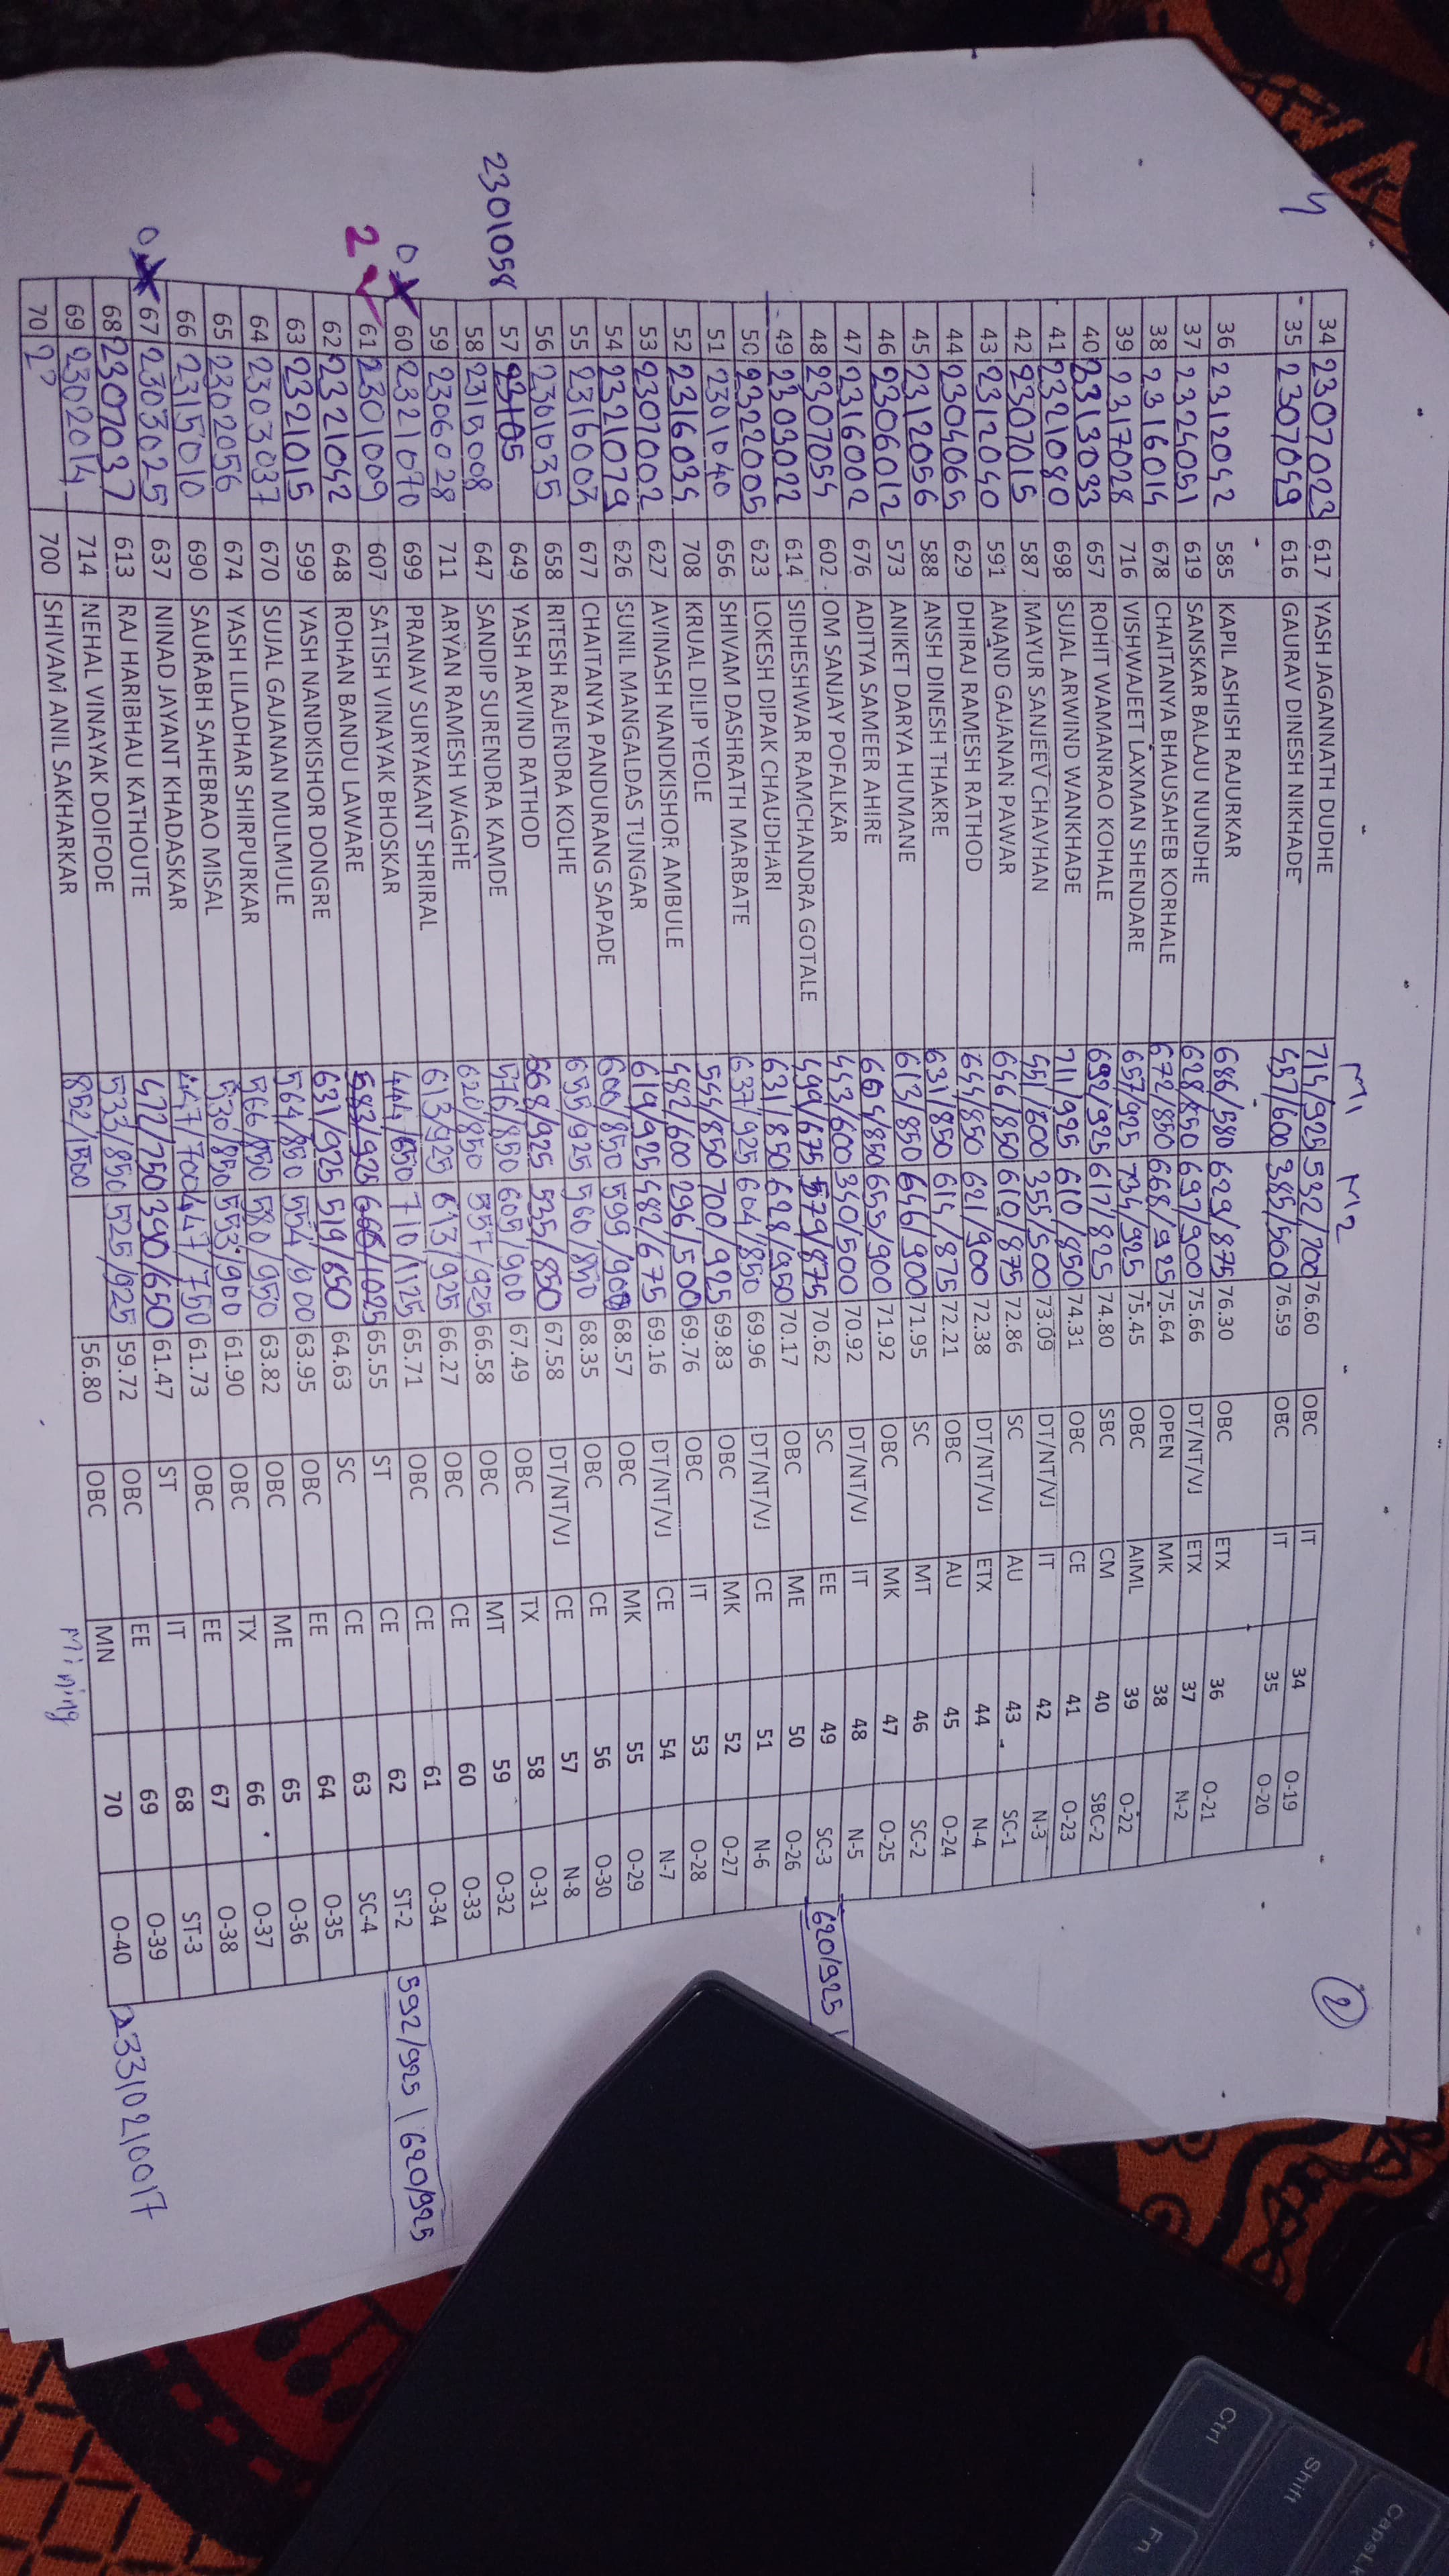 M1 M2 2
34 2307023 617 YASH JAGANNATH DUDHE 714/925 532/700 76.60 OBC IT 34 O-19
35 2307049 616 GAURAV DINESH NIKHADE 457/600 385/500 76.59 OBC IT 35 O-20
36 2312042 585 KAPIL ASHISH RAJURKAR 686/580 629/875 76.30 OBC ETX 36 O-21
37 2324051 619 SANSKAR BALAJU NUNDHE 628/850 697/900 75.66 DT/NT/VJ ETX 37 N-2
38 2316014 678 CHAITANYA BHAUSAHEB KORHALE 672/850 668/925 75.64 OPEN MK 38
39 2317028 716 VISHWAJEET LAXMAN SHENDARE 657/925 734/925 75.45 OBC AIML 39 O-22
40 2313033 657 ROHIT WAMANRAO KOHALE 692/925 617/825 74.80 SBC CM 40 SBC-2
41 2321080 698 SUJAL ARWIND WANKHADE 711/925 610/850 74.31 OBC CE 41 O-23
42 2307015 587 MAYUR SANJEEV CHAVHAN 451/600 355/500 73.09 DT/NT/VJ IT 42 N-3
43 2312040 591 ANAND GAJANAN PAWAR 646/850 610/875 72.86 SC AU 43 SC-1
44 2304065 629 DHIRAJ RAMESH RATHOD 644/850 621/900 72.38 DT/NT/VJ ETX 44 N-4
45 2312056 588 ANSH DINESH THAKRE 631/850 614/875 72.21 OBC AU 45 O-24
46 2306012 573 ANIKET DARYA HUMANE 613/850 646/900 71.95 SC MT 46 SC-2
47 2316002 676 ADITYA SAMEER AHIRE 604/850 655/900 71.92 OBC MK 47 O-25
48 2307054 602 OM SANJAY POFALKAR 443/600 340/500 70.92 DT/NT/VJ IT 48 N-5
49 2303022 614 SIDHESHWAR RAMCHANDRA GOTALE 499/675 579/875 70.62 SC EE 49 SC-3 620/925
50 2322005 623 LOKESH DIPAK CHAUDHARI 631/850 628/950 70.17 OBC ME 50 O-26
51 2301040 656 SHIVAM DASHRATH MARBATE 637/925 604/850 69.96 DT/NT/VJ CE 51 N-6
52 2316034 708 KRUAL DILIP YEOLE 544/850 700/925 69.83 OBC MK 52 O-27
53 2307002 627 AVINASH NANDKISHOR AMBULE 482/600 296/500 69.76 OBC IT 53 O-28
54 2321079 626 SUNIL MANGALDAS TUNGAR 619/925 482/675 69.16 DT/NT/VJ CE 54 N-7
55 2316003 677 CHAITANYA PANDURANG SAPADE 600/850 599/900 68.57 OBC MK 55 O-29
56 2301035 658 RITESH RAJENDRA KOLHE 655/925 560/850 68.35 OBC CE 56 O-30
2301058 57 23105 649 YASH ARVIND RATHOD 668/925 535/850 67.58 DT/NT/VJ CE 57 N-8
58 2315008 647 SANDIP SURENDRA KAMDE 576/850 605/900 67.49 OBC TX 58 O-31
59 2306028 711 ARYAN RAMESH WAGHE 620/850 557/925 66.58 OBC MT 59 O-32
0 60 2321070 699 PRANAV SURYAKANT SHRIRAL 613/925 613/925 66.27 OBC CE 60 O-33
2 61 2301009 607 SATISH VINAYAK BHOSKAR 444/650 710/1125 65.71 OBC CE 61 O-34
62 2321042 648 ROHAN BANDU LAWARE 583/925 666/1025 65.55 ST CE 62 ST-2 592/925 | 620/925
63 2321015 599 YASH NANDKISHOR DONGRE 631/925 519/850 64.63 SC CE 63 SC-4
64 2303037 670 SUJAL GAJANAN MULMULE 564/850 554/900 63.95 OBC EE 64 O-35
65 2302056 674 YASH LILADHAR SHIRPURKAR 566/850 580/950 63.82 OBC ME 65 O-36
66 2315010 690 SAURABH SAHEBRAO MISAL 530/850 553/900 61.90 OBC TX 66 O-37
0 67 2303025 637 NINAD JAYANT KHADASKAR 447/700 447/750 61.73 OBC EE 67 O-38
68 2307037 613 RAJ HARIBHAU KATHOUTE 472/750 390/650 61.47 ST IT 68 ST-3
69 2302014 714 NEHAL VINAYAK DOIFODE 533/850 525/925 59.72 OBC EE 69 O-39
70 23 700 SHIVAM ANIL SAKHARKAR 852/1500 56.80 OBC MN 70 O-40 23310210017
Mining
CapsLk
Shift
Ctrl
Fn